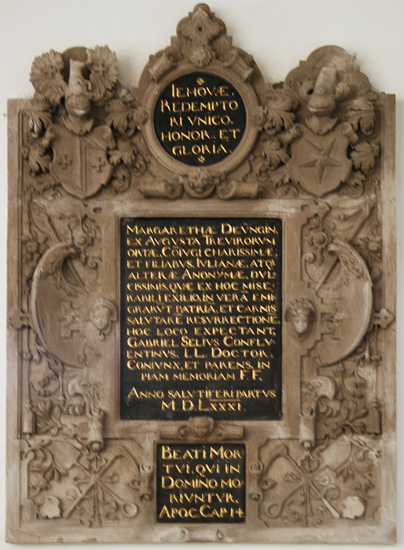 IEHOVÆ,
REDEMPTO
RI VNICO,
HONOR, ET
GLORIA.
MARGARETHÆ DEŸNGIN,
EX AVGVSTA TREVIRORVM
ORTÆ, COIVGI CHARISSIMÆ,
ET FILIABVS IVLIANÆ, ATQ
ALTERÆ ANONYMÆ, DVL
CISSIMIS, QVÆ EX HOC MISE
RABILI EXILIO, IN VERĀ EMI
GRARVT PATRIĀ, ET CARNIS
SALVTARĒ RESVRRECTIONĒ
HOC LOCO EXPECTANT,
GABRIEL SELIVS CONFLV
ENTINVS. I.L. DOCTOR,
CONIVNX, ET PARENS, IN
PIAM MEMORIAM F.F.
ANNO SALVTIFERI PARTVS
M.D.LXXXI.
BEATI MOR
TVI, QVI IN
DOMINO MO
RIVNTVR,
APOC CAP 14